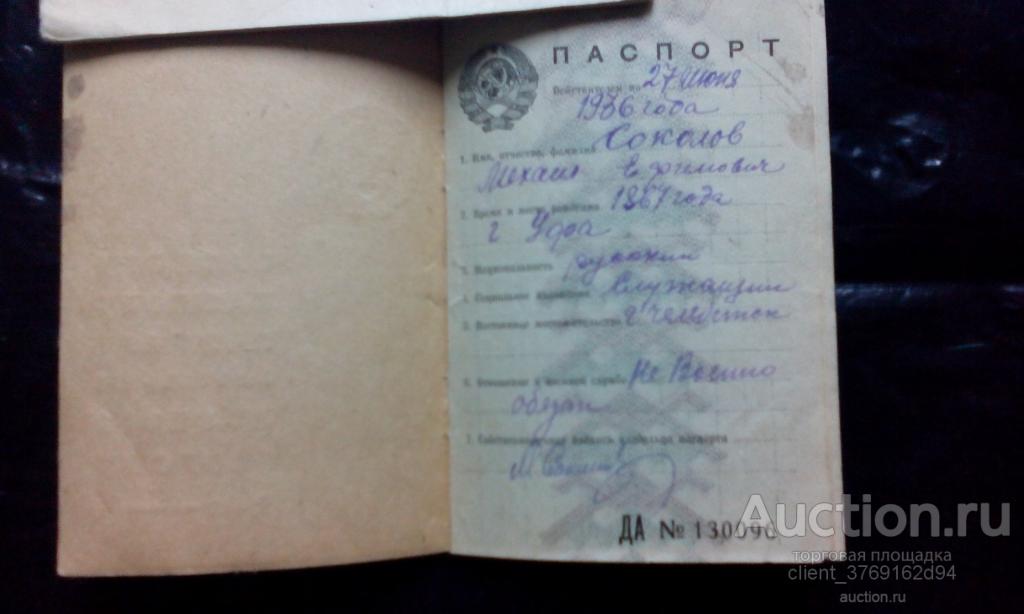 ПАСПОРТ
Действителен по 27 июня
1936 года
1. Имя, отчество, фамилия Соколов
Михаил Ефимович
2. Время и место рождения 1867 года
г Уфа
3. Национальность русский
4. Социальное положение Служащий
5. Постоянное местожительство г Челябинск
6. Отношение к военной службе Не Военно
обязан
7. Собственноручная подпись владельца паспорта
ДА № 130096
Auction.ru
торговая площадка
client_3769162d94
auction.ru